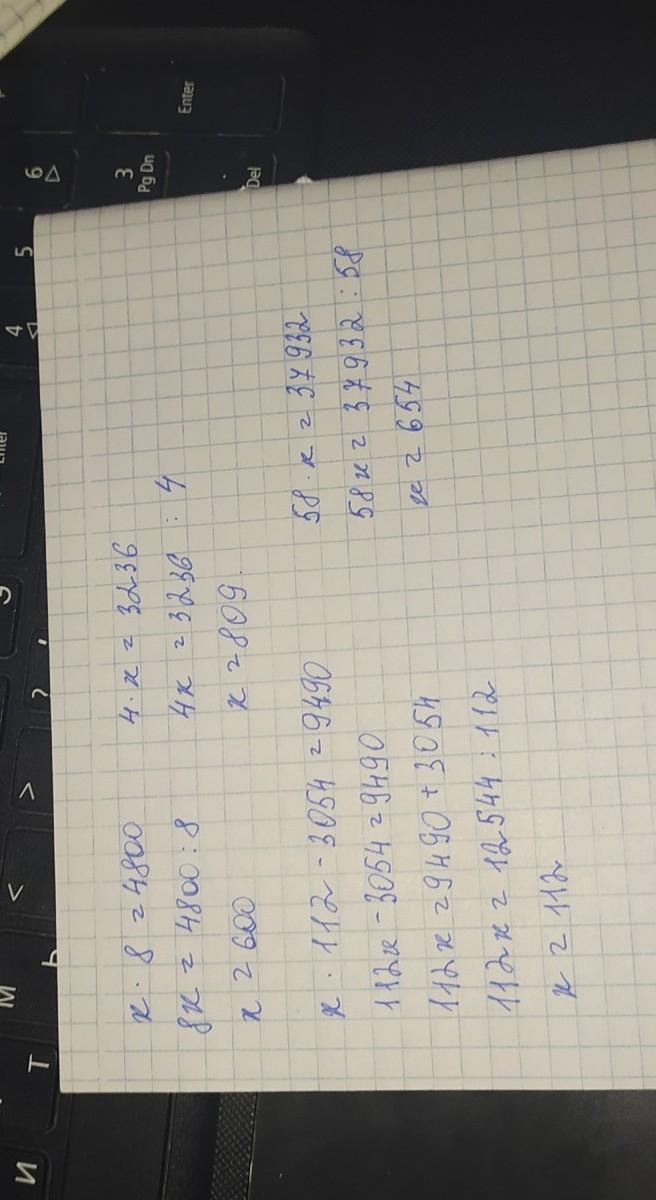 x · 8 = 4800
8x = 4800 : 8
x = 600
4 · x = 3236
4x = 3236 : 4
x = 809.
x · 112 - 3054 = 9490
112x - 3054 = 9490
112x = 9490 + 3054
112x = 12544 : 112
x = 112
58 · x = 37932
58x = 37932 : 58
x = 654
Enter
6
3
Pg Dn
.
Del
5
4
?
,
>
<
М
Ь
Т
И